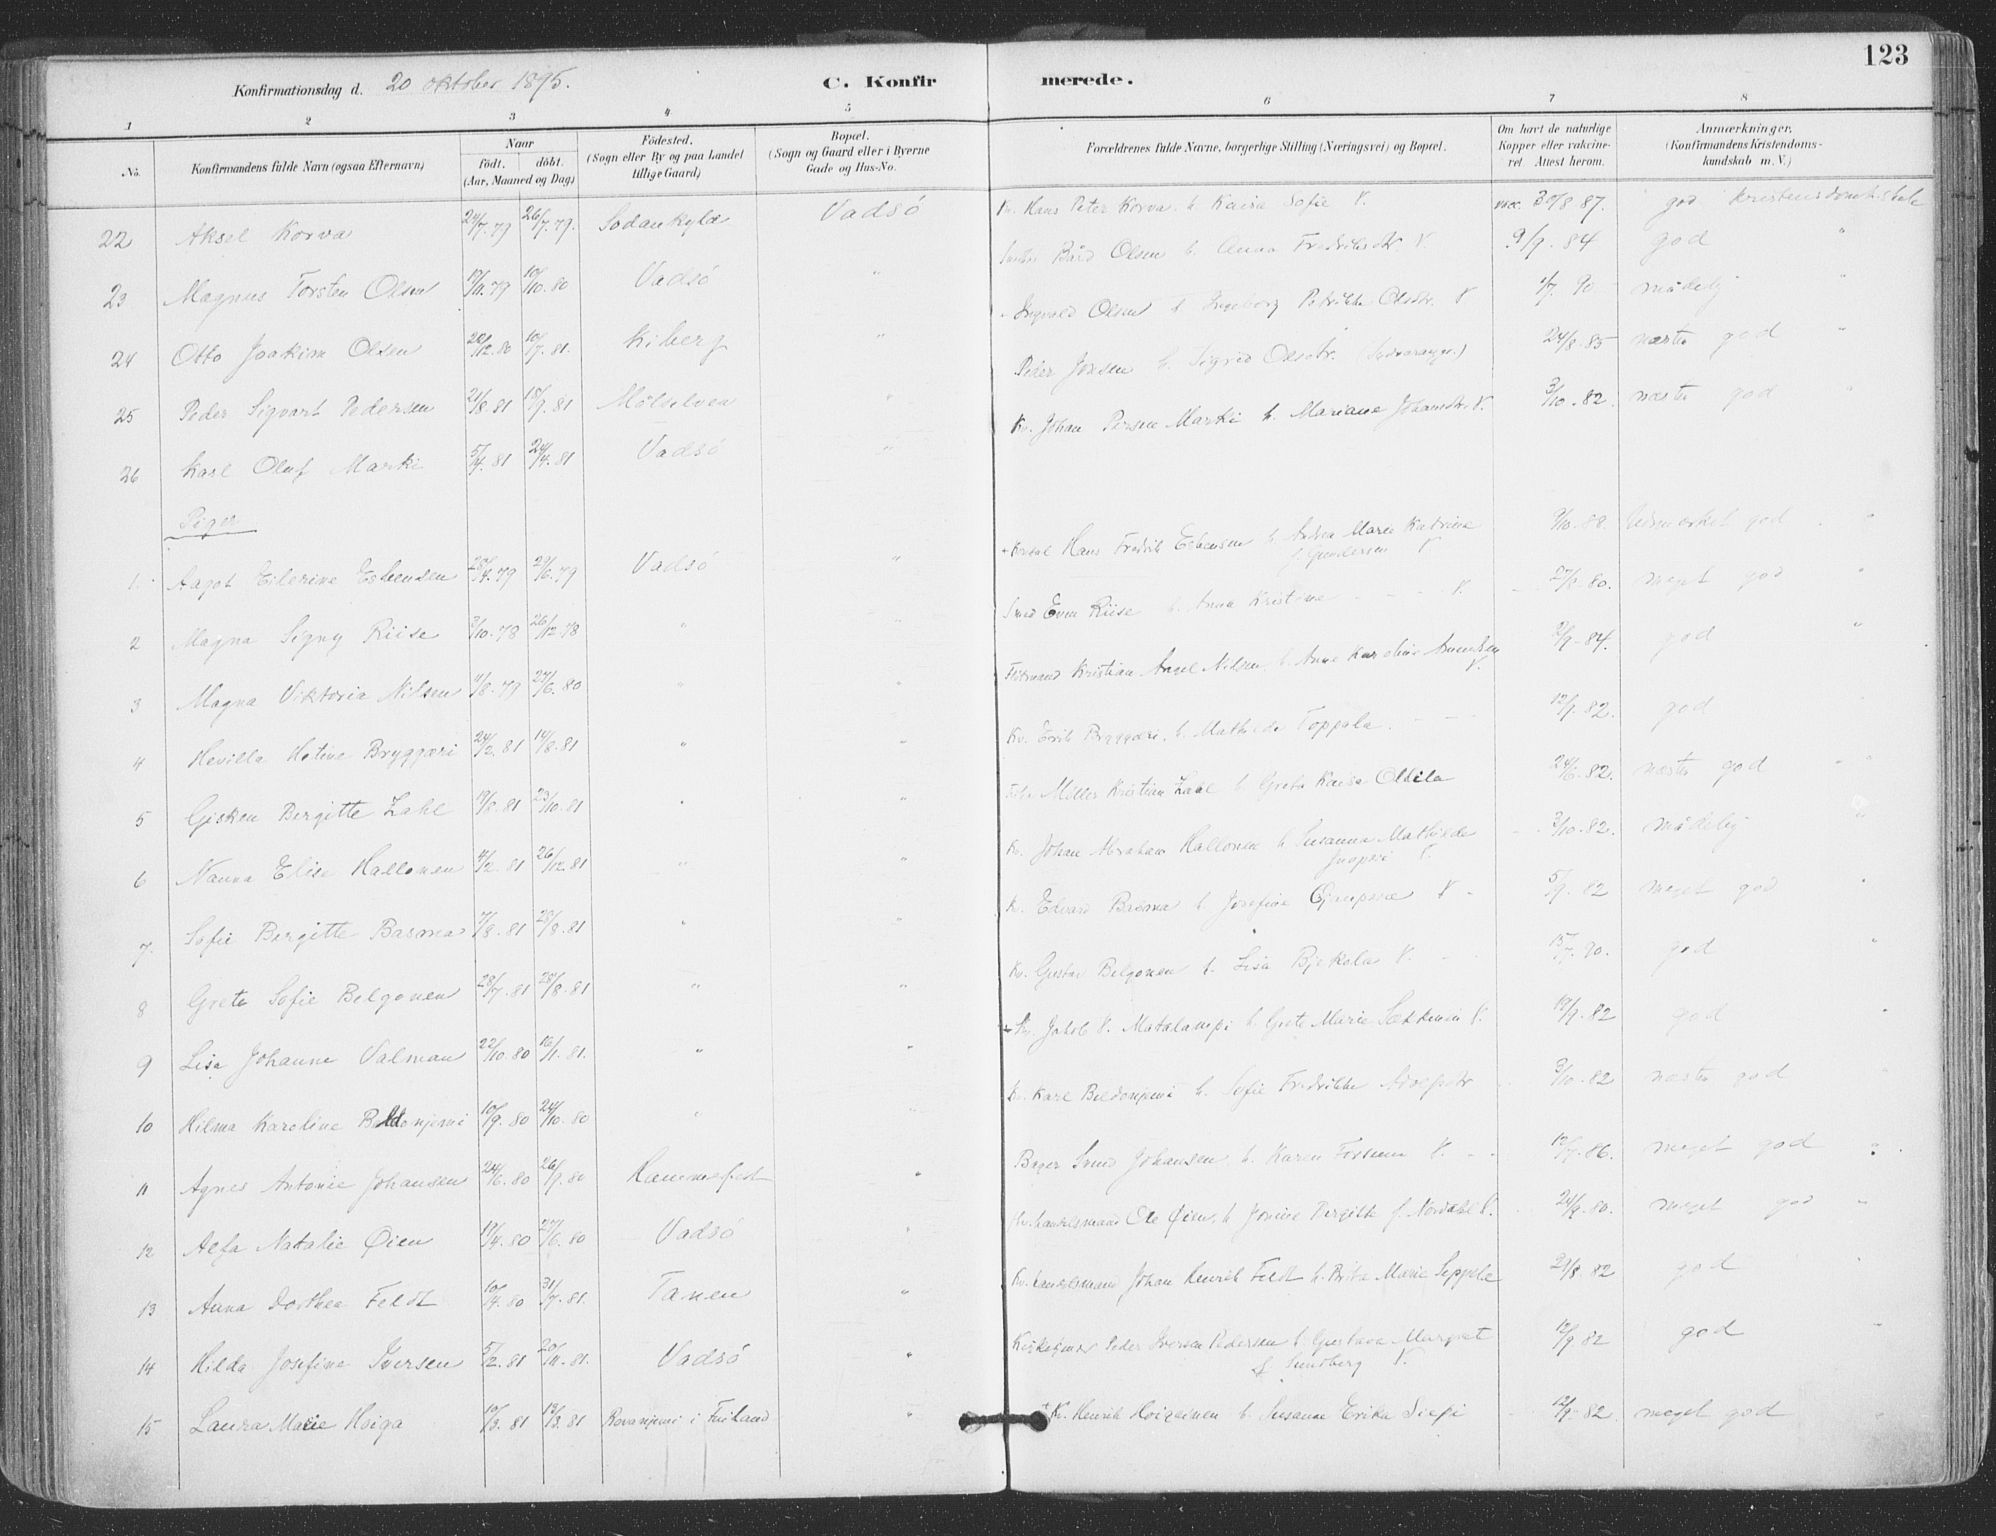 123
Konfirmationsdag d. 20 oktober 1895.
C. Konfirmerede.
1 2 3 4 5 6 7 8
No.
Konfirmandens fulde Navn (ogsaa Efternavn)
Naar
födt. döbt.
(Aar, Maaned og Dag)
Födested.
(Sogn eller By og paa Landet
tillige Gaard)
Bopæl.
(Sogn og Gaard eller i Byerne
Gade og Hus-No.
Forældrenes fulde Navne, borgerlige Stilling (Næringsvei) og Bopæl.
Om havt de naturlige
Kopper eller vakcine-
ret. Attest herom.
Anmærkninger.
(Konfirmandens Kristendoms-
kundskab m. V.)
22 Aksel Korva 24/7.79 26/7.79. Sodankylæ Vadsö Kv. Hans Peter Korva h. Kaisa Sofie V. vac. 30/8 87. god kristendomskskab
23 Magnus Torsten Olsen 17/11.79 10/10.80 Vadsö " Bård Olsen h. Anna Fredriksdtr. V. 9/9.84 god "
24 Otto Joakim Olsen 28/12.80 10/7.81. Kiberg " Ingvald Olsen h. Ingeborg Petrikke Olsdtr. V 1/7.90 mådelig "
25 Peder Sigvart Pedersen 21/8.81 18/9.81 Målselven " Peder Jonsen h. Sigrid Olsdtr. (Sydvaranger.) 24/8.85 næsten god "
26 Karl Oluf Marki 5/4.81 24/4.81 Vadsö " Kv. Johan Persen Marki h. Mariane Johansdtr. V. 3/10.82. næsten god "
Piger
1. Aagot Eilerine Esbensen 28/4.79 29/6.79 Vadsö " Hans Fredrik Esbensen h. Andrea Marie Katrine
f. Gundersen V 9/10.88. Udmærket god "
2 Magna Signy Riise 3/10.78 26/12.78 " " Smed Even Riise h. Anna Kristine V. 27/8.80. meget god "
3 Magna Viktoria Nilsen 11/8.79 27/6.80 " " Kristian Nilsen h. Anne Karoline Amundsen
V. 2/9.84. god "
4 Hevilla Hotine Bryggæri 24/2.81 14/8.81 " " Kv. Erik Bryggæri h. Mathilde Toppala. 12/9.82. god
5 Gisken Bergitte Zahl 19/8.81 23/10.81 " " Möller Kristian Zahl h. Greta Kaisa Ollila 24/6.82. næsten god "
6 Nanna Elise Hallonen 4/2.81 26/12.81 " " Kv. Johan Abraham Hallonen h. Susanna Mathilde
V. 3/10.82. mådelig "
7. Sofie Bergitte Basma 7/8.81 28/8.81 " " Kv. Edvard Basma h. Josefine V 5/9.82 meget god "
8 Greta Sofie Belgonen 28/7.81 28/8.81 " " Kv. Gustav Belgonen h. Lisa Bjekola V. 15/7.90. god "
9 Lisa Johanne Valman 22/10.80 16/1.81. " " Jakob V. Matalampi h. Greta Marie V. 19/9.82 god "
10 Hilma Karoline Beldonjemi 10/9.80 24/10.80 " Kv. Karl Beldonjemi h. Sofie Fredrikke 3/10.82 næsten god
11 Agnes Antonie Johansen 24/6.80 26/9.80 Hammerfest " Bager Svend Johansen h. Karen V. 12/7.86. meget god "
12 Alfa Natalie Öien 18/4.80 27/6.80 Vadsö " fhv. handelsmand Ole Öien h. Jonine Bergitte f. Nordahl V. 24/9.80. meget god "
13 Anna Dorthea Feldt 10/4.80 31/7.81. Tanen " Kv. handelsmand Johan Henrik Feldt h. Brita Marie Seppela 29/8.82 god "
14 Hilda Josefine Iversen 5/2.81 20/11.81. Vadsö " Peder Iversen Pedersen h. Gustava Margret
f. Sundberg V. 12/9.82 god "
15 Laura Marie Hoiga 10/3.81 13/3.81 Rovanjemi i Finland " + Kv. Henrik Hoikainen h. Susanna Erika Siepi 12/9.82 meget god "